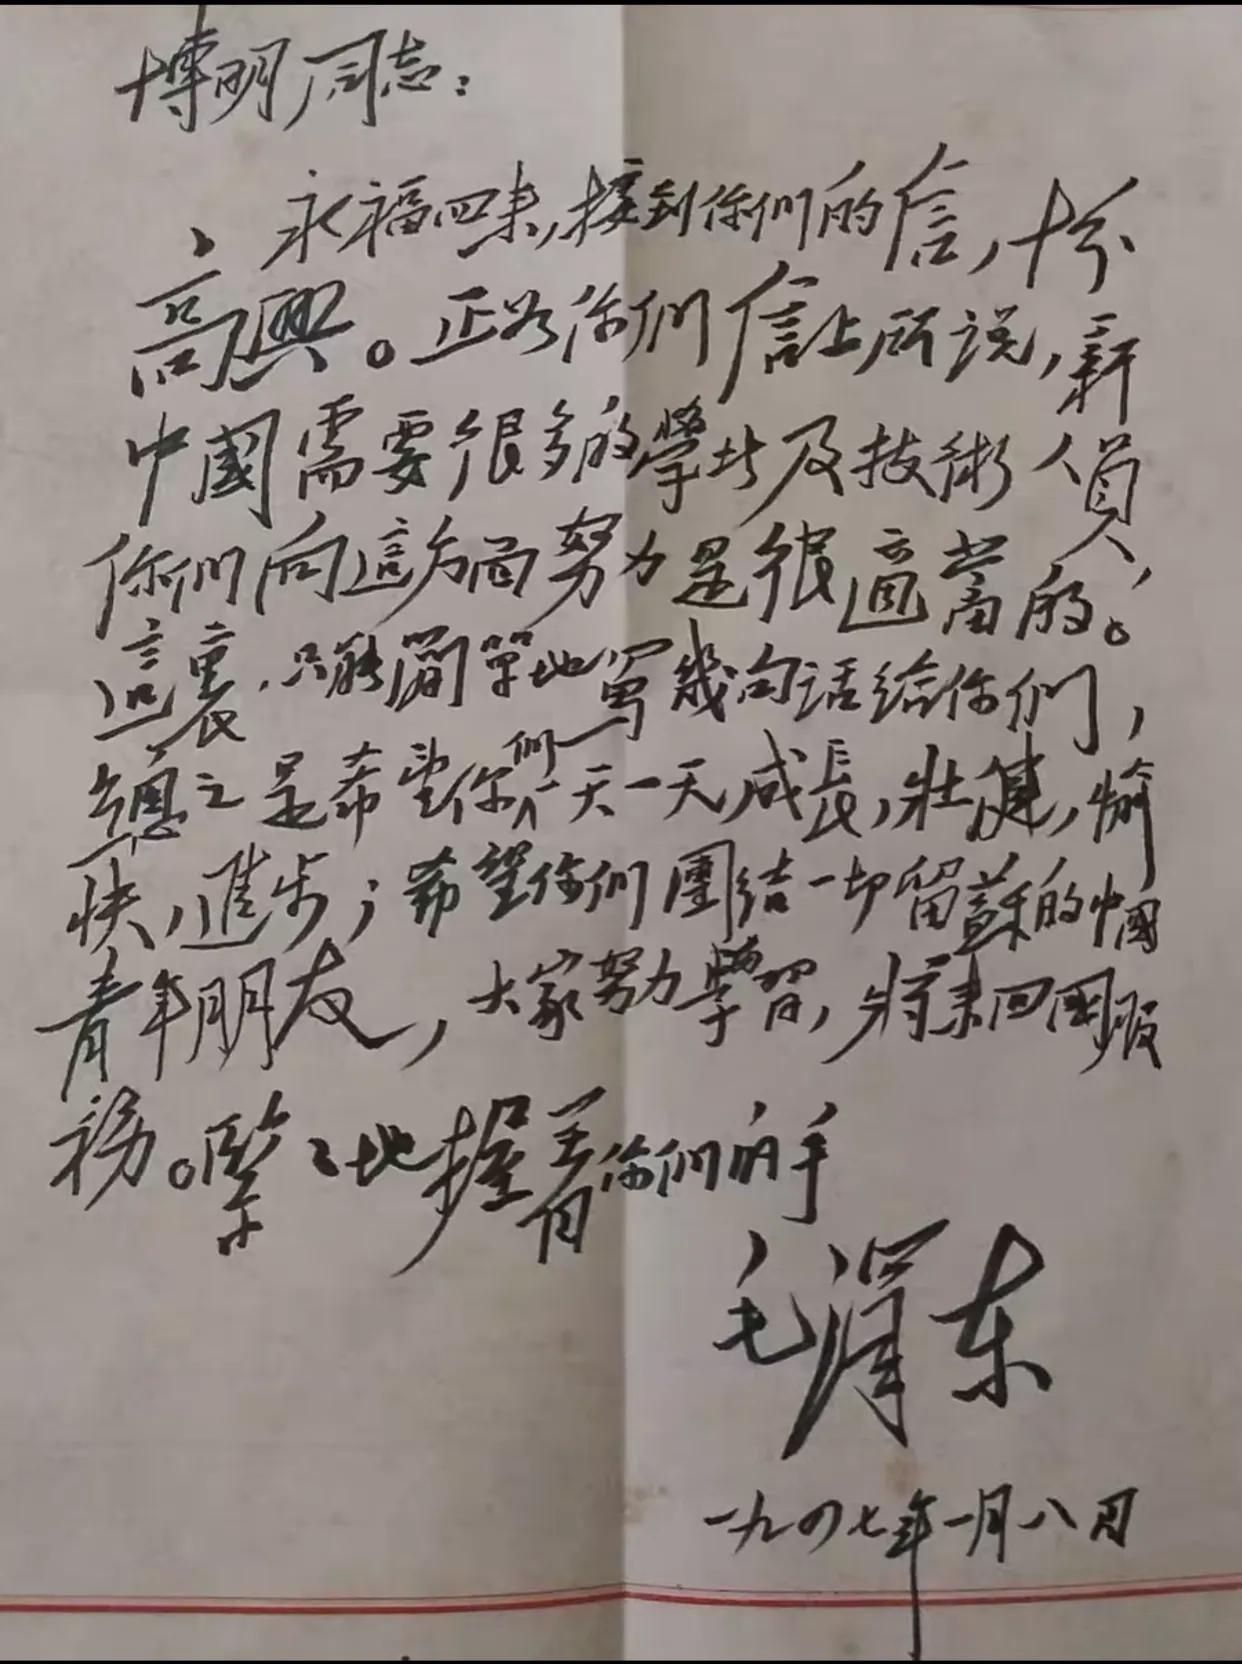 博明同志：
永福回来，接到你們的信，十分
高興。正如你們信上所说，新
中國需要很多的學者及技術人員，
你們向這方面努力是很適當的。
這裏，只能簡單地寫幾句话給你們，
總之是希望你們一天一天成長，壮健，愉
快，進步；希望你們團結一切留蘇的中國
青年朋友，大家努力學習，将来回國服
務。緊緊地握着你們的手
毛澤东
一九四七年一月八日